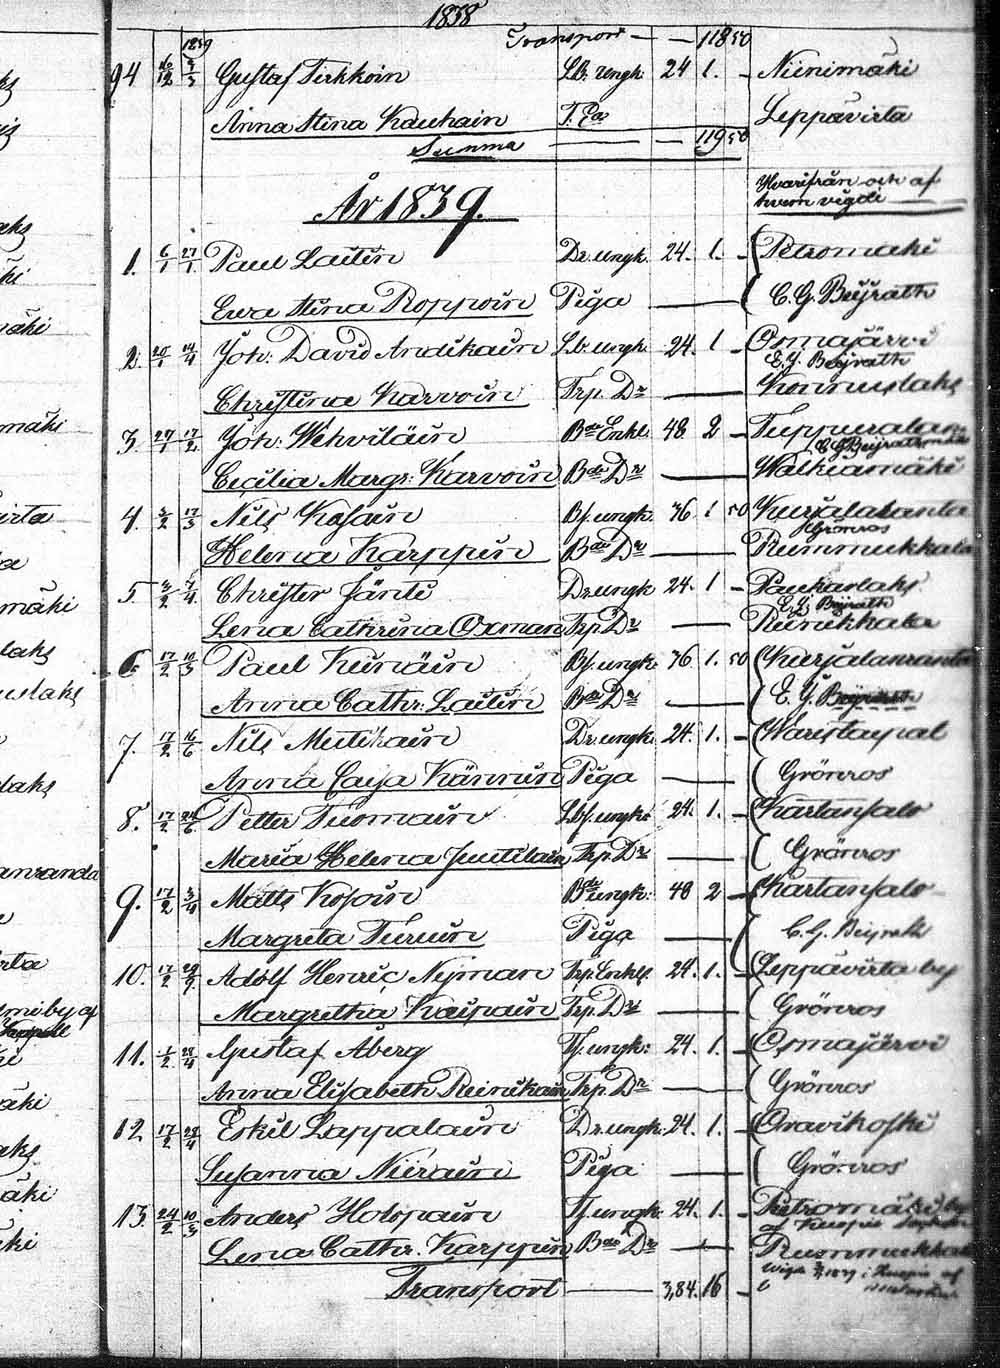 1838
1839
Transport — — 118 50
94 16/12 3/3 Gustaf Tirkkoin Lb. ungk. 24 1. – Niinimäki
Anna Stina Kauhain T. Leppävirta
Summa — — 119 50
Hvarifrån och af
hvem vigde
År 1839.
1. 6/1 27/1 Paul Laitin Dr. ungk. 24. 1. – Petromäki
Ewa Stina Roppoin Piga — C. G. Beijrath
2. 20/1 14/4 Joh: David Andikain Lb. ungk. 24. 1 – Osmajärvi
E. J. Beijrath
Christina Karvoin Trp. Dr — Konnuslaks
3. 27/1 17/2 Joh: Wehviläin Bde Enkl. 48. 2 –
C G Beijrath
Cecilia Margr: Karvoin Bde Dr — Walkiamäki
4. 3/2 17/3 Nils Kosain Bf. ungk. 36 1 50 Kurjalaranta
Grönros
Helena Karppin Bde Dr — Rummukkala
5. 3/2 7/4 Christer Jänti Dr. ungk 24. 1 – Paukarlaks
E. J. Beijrath
Lena Cathrina Oxman Trp. Dr — Riinikkala
6. 17/2 10/3 Paul Kinäin Bf. ungk. 36 1. 50 Kurjalanranta
Anna Cathr: Laitin Bde Dr — E. J. Beijrath
7. 17/2 16/6 Nils Mutikain Dr. ungk. 24. 1. – Waristaipal
Anna Caija Kännin Piga — Grönros
8. 17/2 24/6 Petter Tuomain Lbf. ungk. 24. 1. – Kartansalo
Maria Helena Juutilain Trp. Dr — Grönros
9. 17/2 Matts Kosoin Bde ungk: 48 2 – Kartansalo
Margreta Turuin Piga — C. G. Beijrath
10. 17/2 Adolf Henric Nyman Trp. Enkl. 24. 1. – Leppävirta by
Margretha Kaipain Trp. Dr — Grönros
11. 28/4 Gustaf Åberg Tf. ungk: 24. 1. – Osmajärvi
Anna Elisabeth Reinikain Trp. Dr — Grönros
12 17/2 28/4 Eskil Lappalain Dr. ungk. 24. 1. – Oravikoski
Susanna Niirain Piga — Grönros
13. 24/2 10/3 Anders Holopain Tf. ungk. 24. 1. – Petromäki by
af Kuopio
Lena Cathr. Karppin Bde Dr — Rummukkala
Transport — 3,84. 16 –